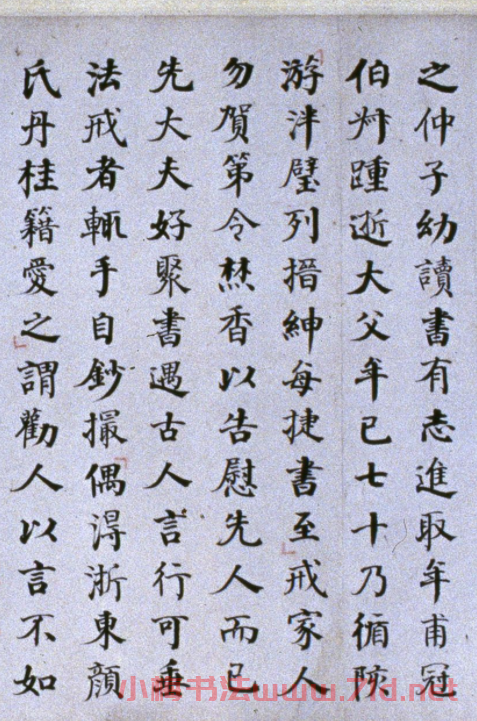 之仲子幼讀書有志進取年甫冠
伯叔踵逝大父年已七十乃循陔
游泮璧列搢紳每捷書至戒家人
勿賀第令焚香以告慰先人而已
先大夫好聚書遇古人言行可垂
法戒者輒手自鈔撮偶淂浙東顏
氏丹桂籍愛之謂勸人以言不如
书法www.71d.net